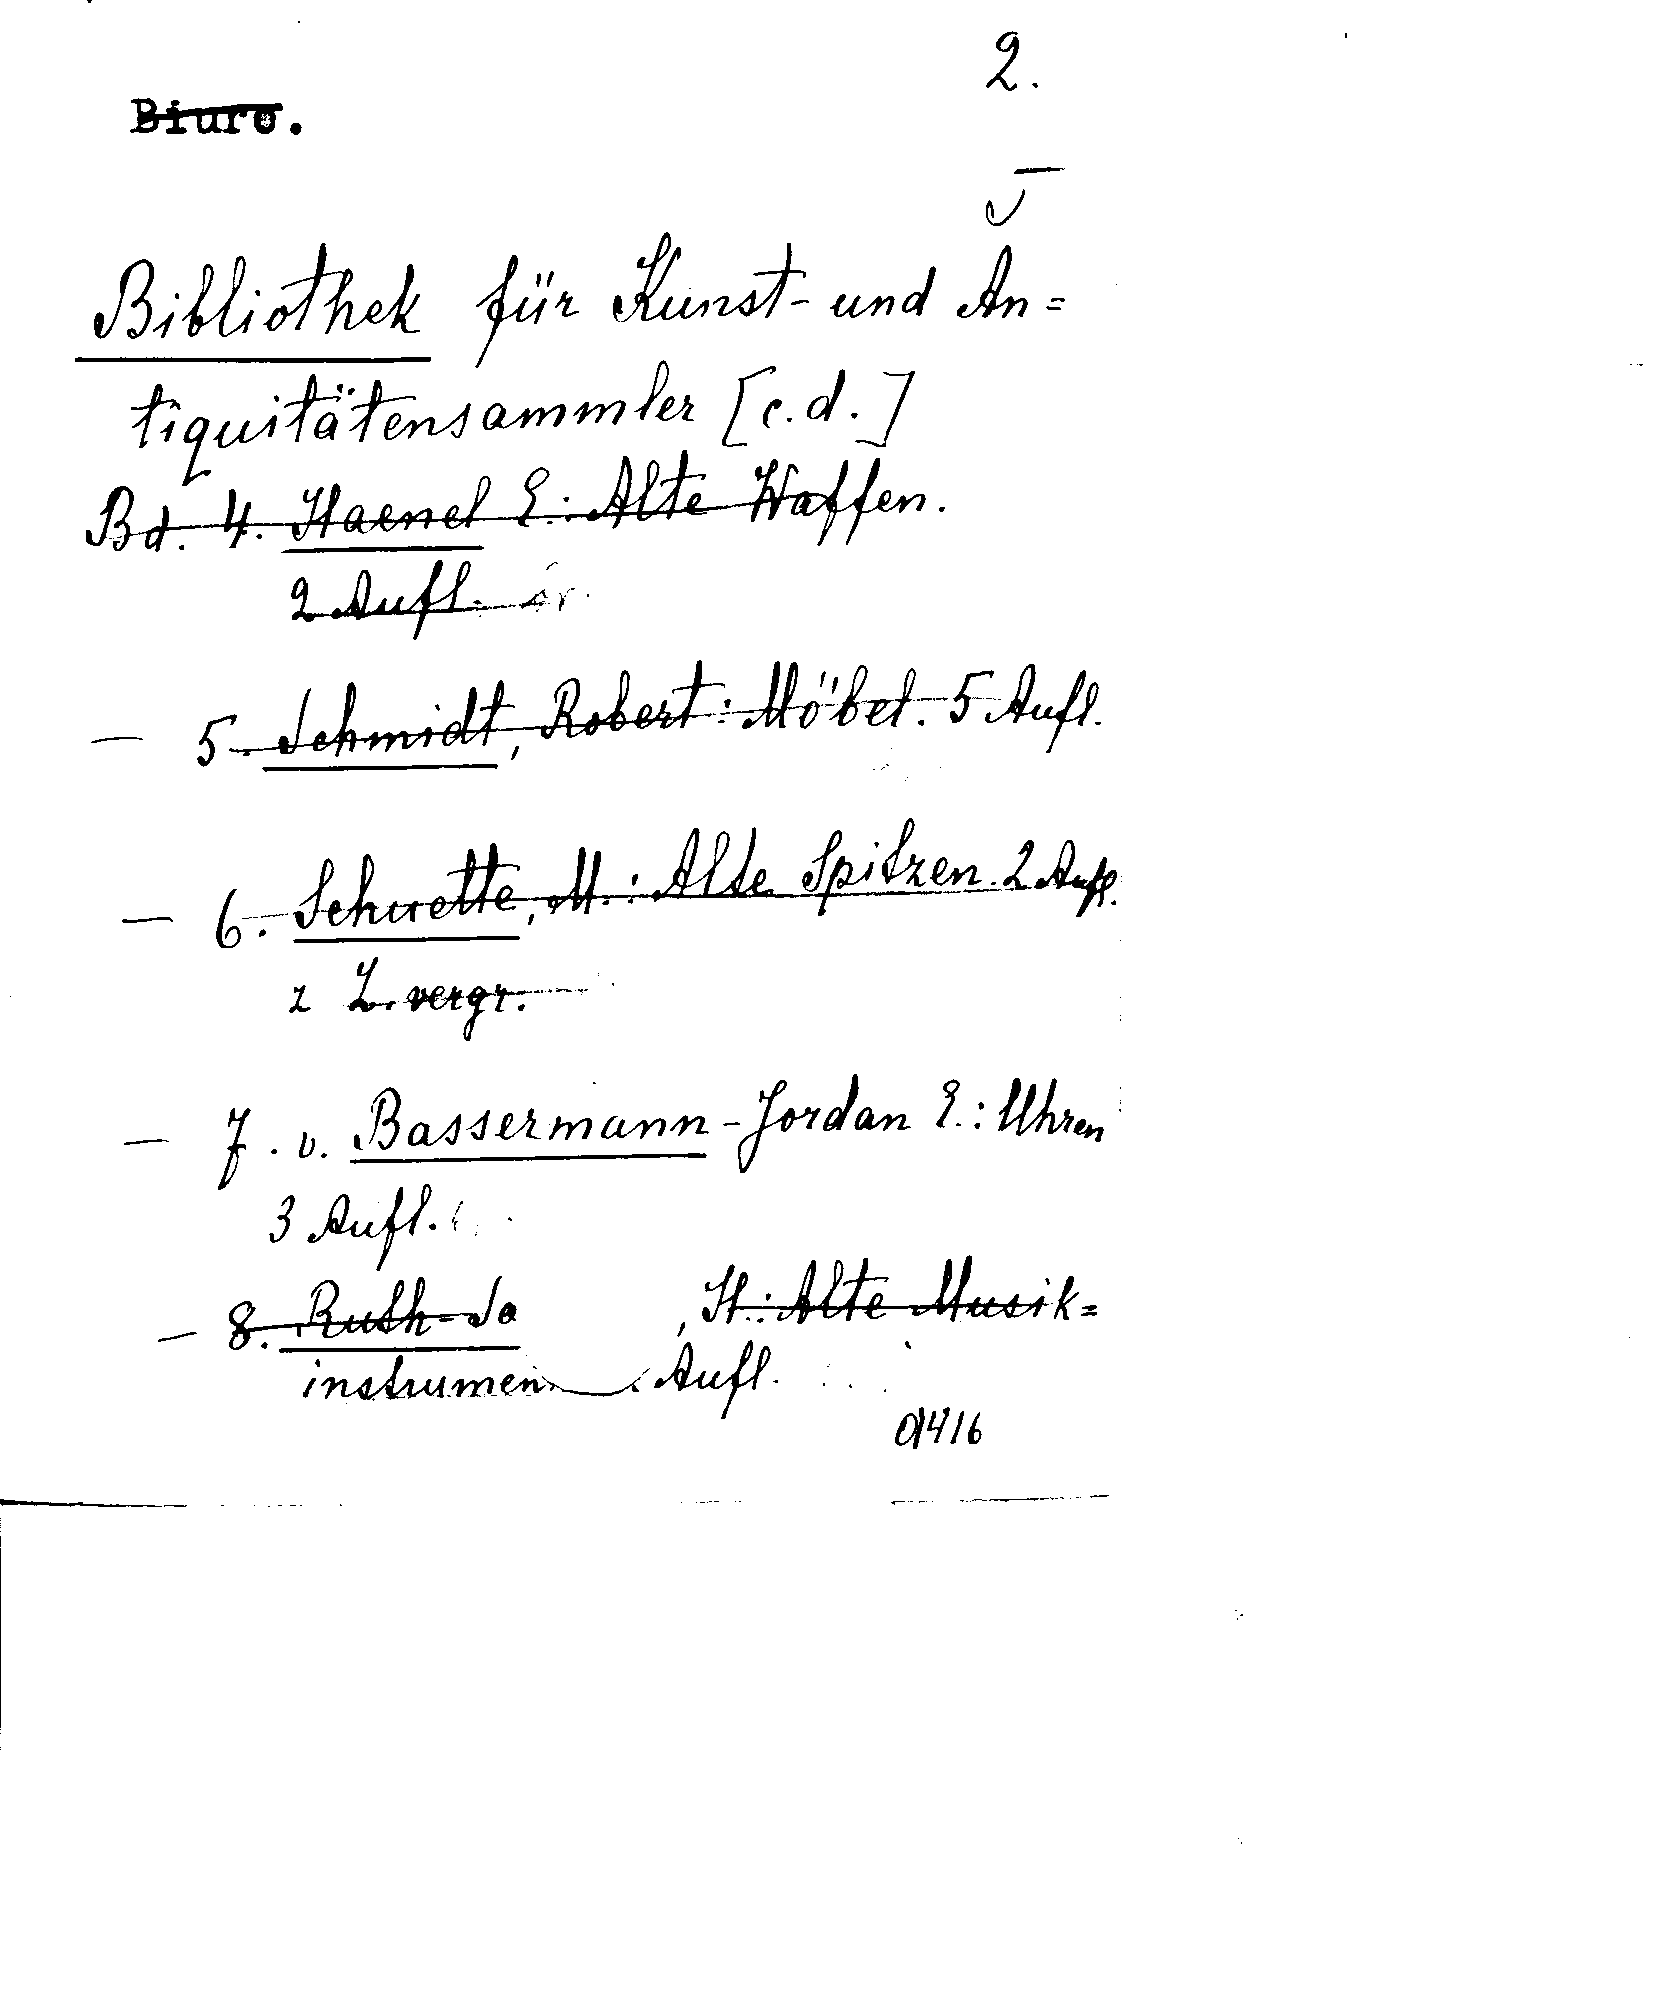 2.
Biuro.
Bibliothek für Kunst- und An=
tiquitätensammler [c.d.]
Bd. 4. Haenel E.: Alte Waffen.
2 Aufl.
— 5. Schmidt, Robert: Möbel. 5 Aufl.
— 6. Schuette, M.: Alte Spitzen. 2 Aufl.
z Z. vergr.
— 7. v. Bassermann-Jordan E.: Uhren
3 Aufl.
— 8. Ruth-So , H.: Alte Musik=
instrumen . Aufl.